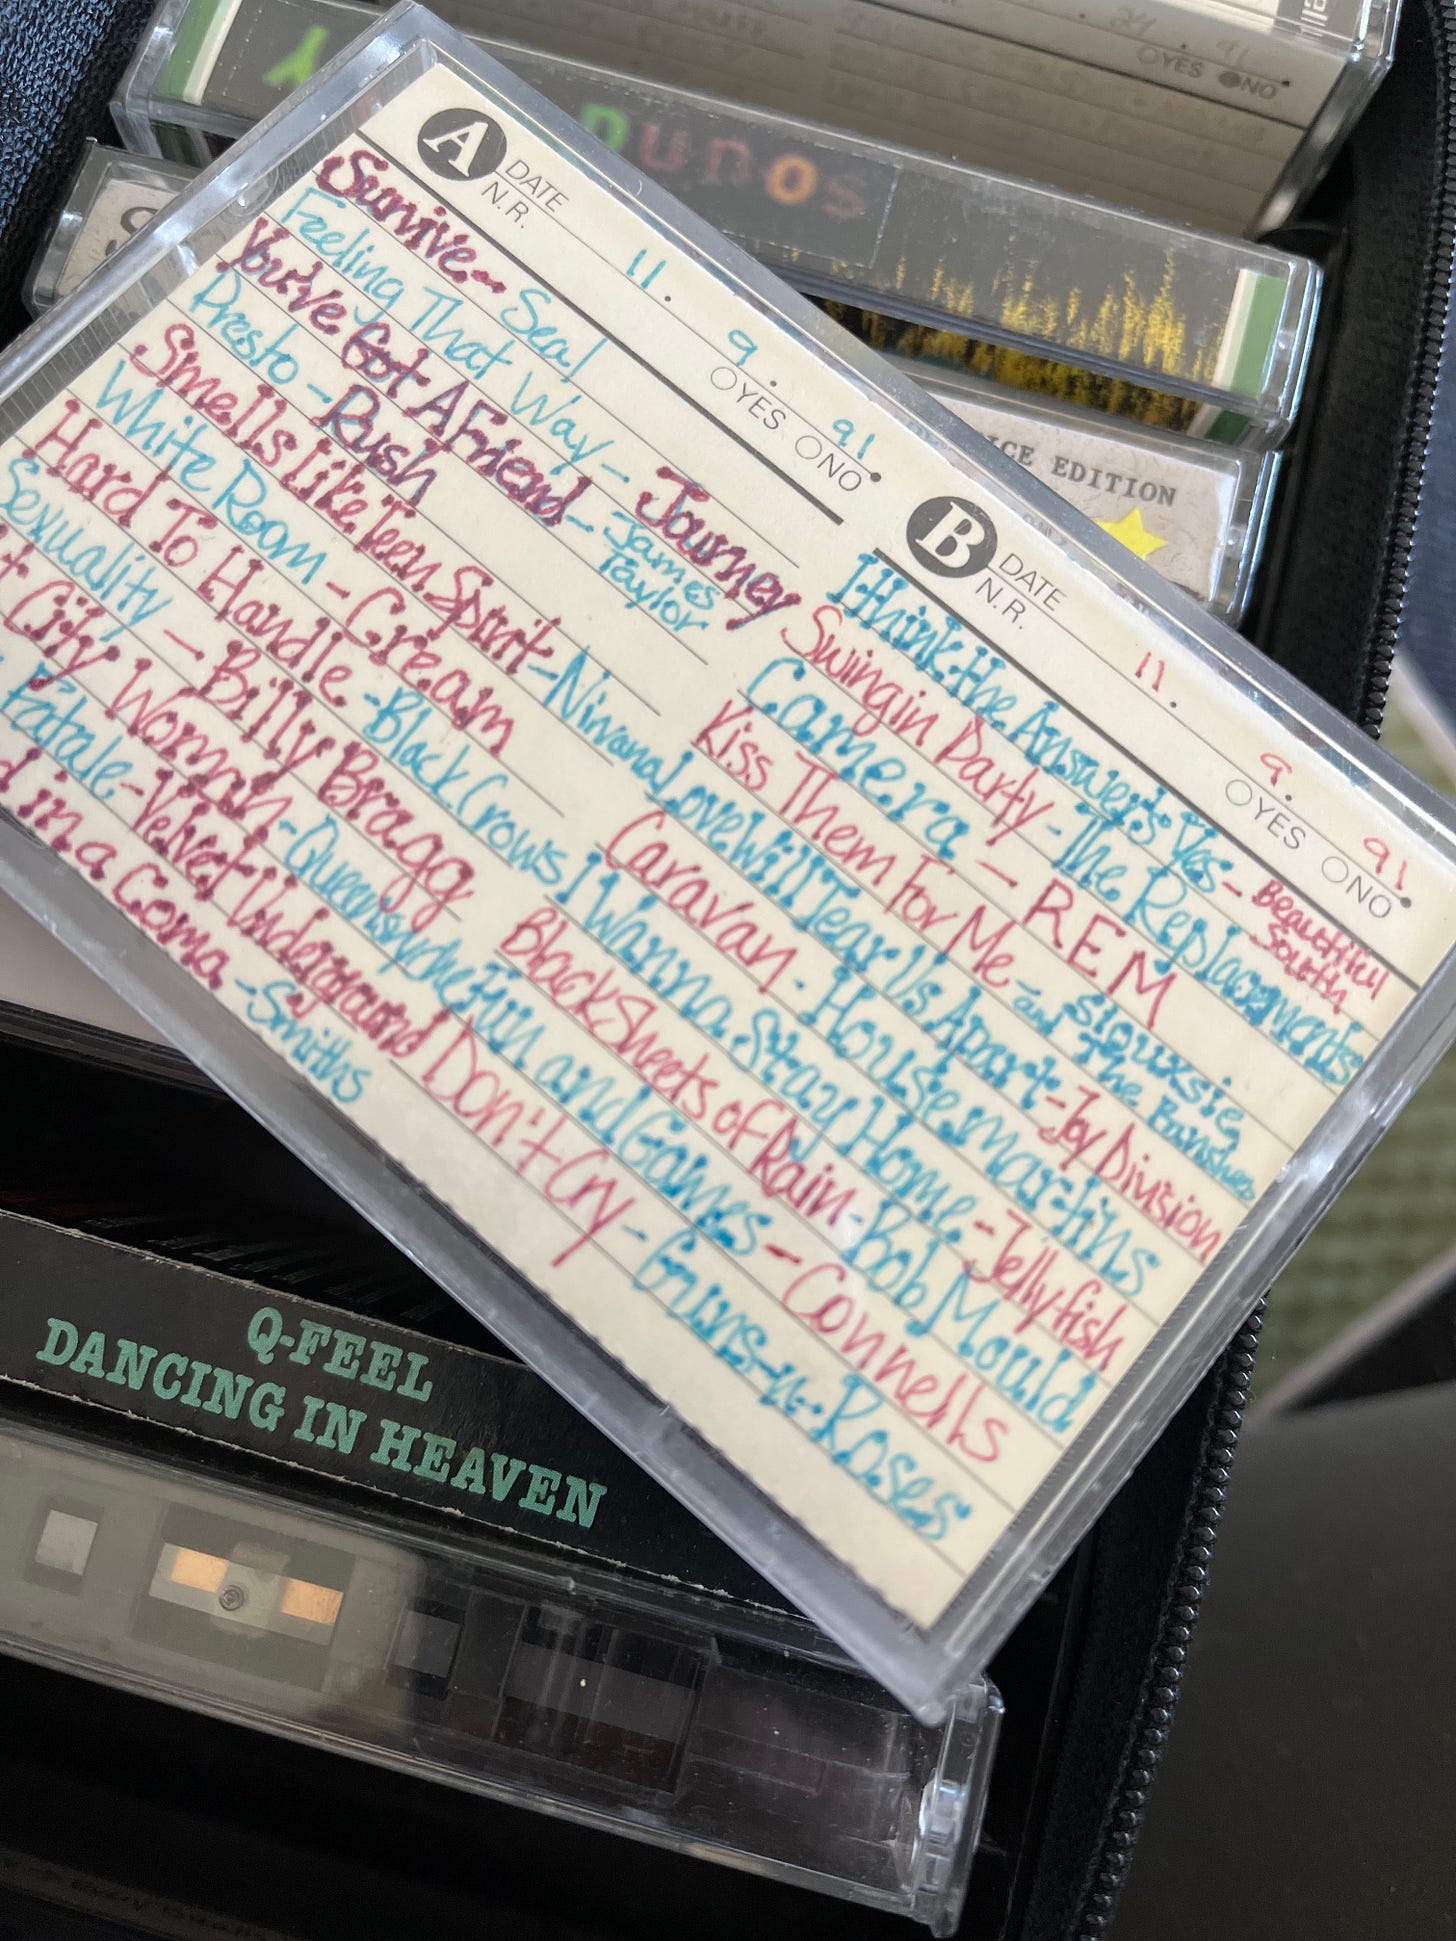 A DATE
N.R.
11. 9. 91
OYES ONO
Survive - Seal
Feeling That Way - Journey
You've Got A Friend - James Taylor
Presto - Rush
Smells Like Teen Spirit - Nirvana
White Room - Cream
Hard To Handle - Black Crows
Sexuality - Billy Bragg
City Woman - Queensryche
Fatale - Velvet Underground
in a Coma - Smiths
B DATE
N.R.
11. 9. 91
OYES ONO
I think the Answer's Yes - Beautiful South
Swingin Party - The Replacements
Camera - REM
Kiss Them For Me - Siouxsie and The Banshees
Love Will Tear Us Apart - Joy Division
Caravan - Housemartins
I Wanna Stay Home - Jellyfish
Black Sheets of Rain - Bob Mould
Fun and Games - Connells
Don't Cry - Guns-n-Roses
91
OYES ONO
unos
ICE EDITION
Q-FEEL
DANCING IN HEAVEN